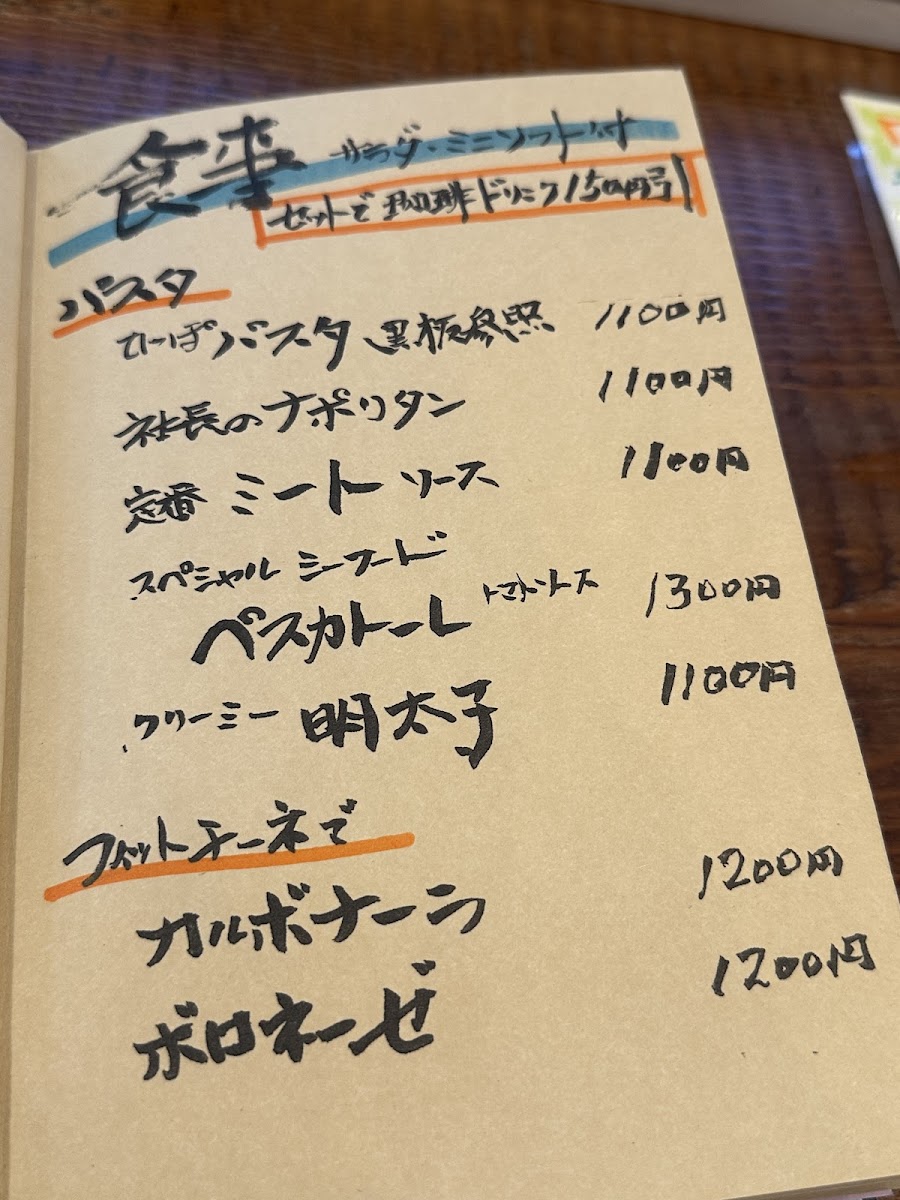 食事 サラダ・ミニソフト付
セットで珈琲ドリンク150円引
パスタ
てっぽパスタ 黒板参照 1100円
社長のナポリタン 1100円
定番 ミートソース 1100円
スペシャル シーフード
ペスカトーレ トマトソース 1300円
クリーミー 明太子 1100円
フィットチーネで
カルボナーラ 1200円
ボロネーゼ 1200円